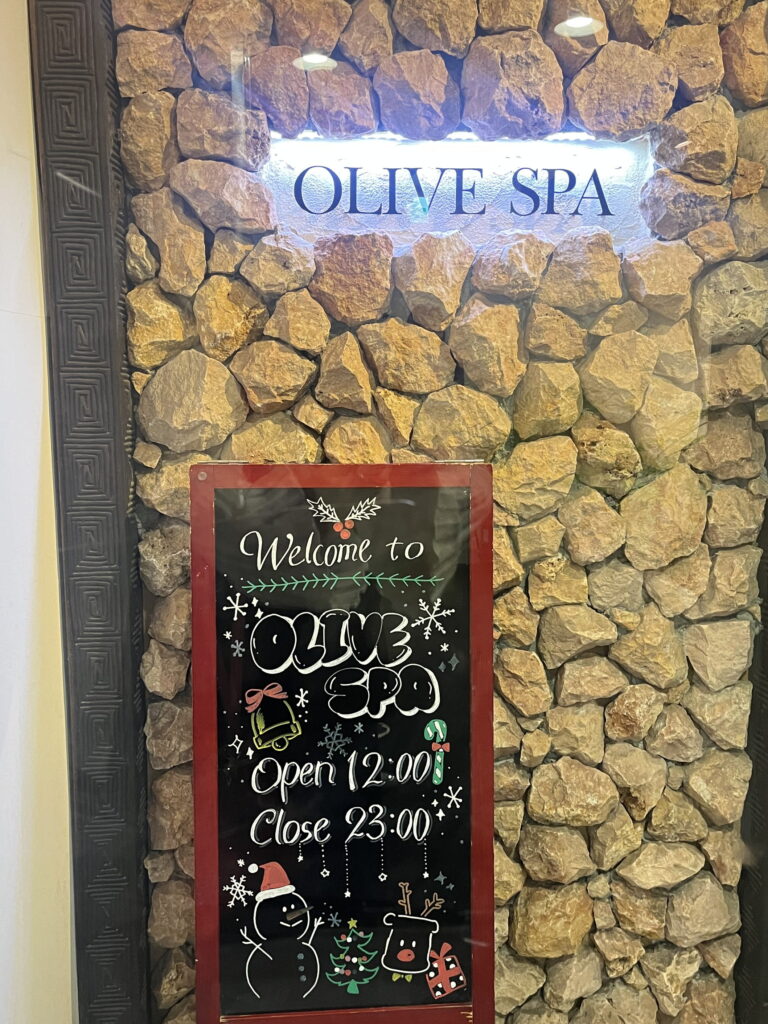 OLIVE SPA
Welcome to
OLIVE
SPA
Open 12:00
Close 23:00